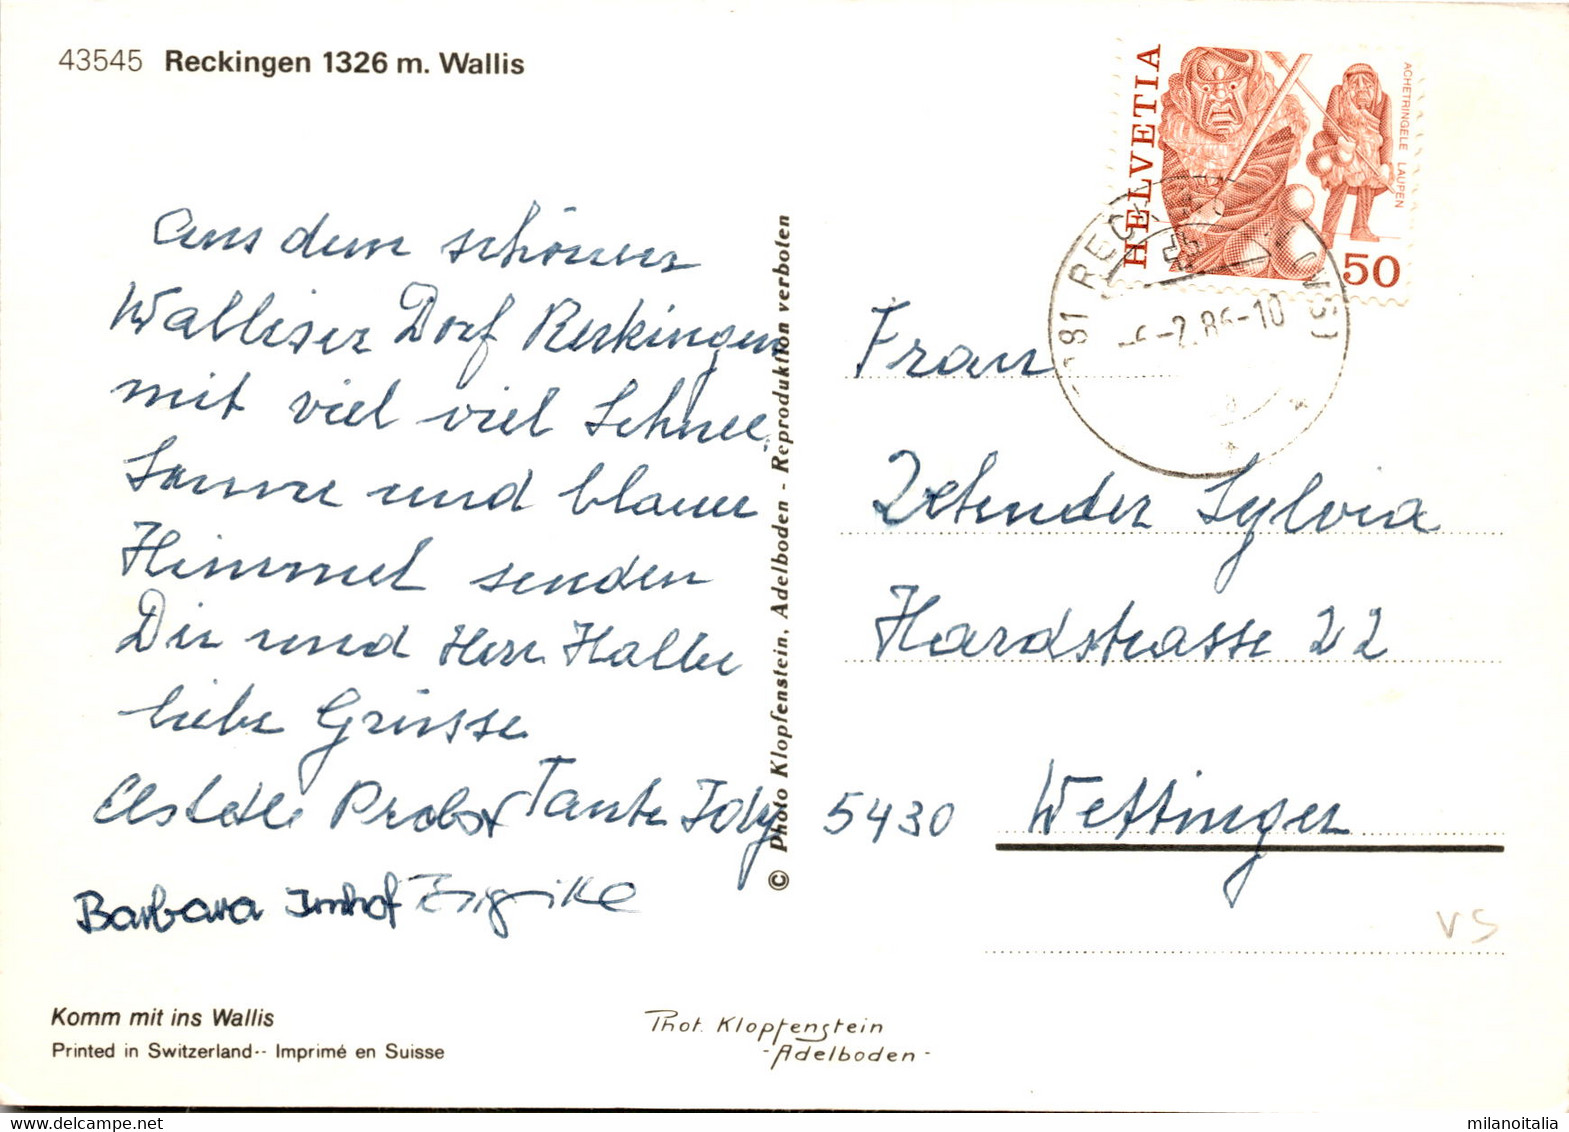 43545 Reckingen 1326 m. Wallis
Aus dem schönen
Walliser Dorf Reckingen
mit viel viel Schnee,
Sonne und blauen
Himmel senden
Dir und Herr Haller
liebe Grüsse
Probst Tante Idy
Barbara Imhof
Komm mit ins Wallis
Printed in Switzerland -- Imprimé en Suisse
© Photo Klopfenstein, Adelboden - Reproduktion verboten
Phot. Klopfenstein
- Adelboden -
HELVETIA
ACHETRINGELE LAUPEN
50
(VS)
-2.86-10
Frau
Zehnder Sylvia
Hardstrasse 22
5430 Wettingen
VS
milanoitalia